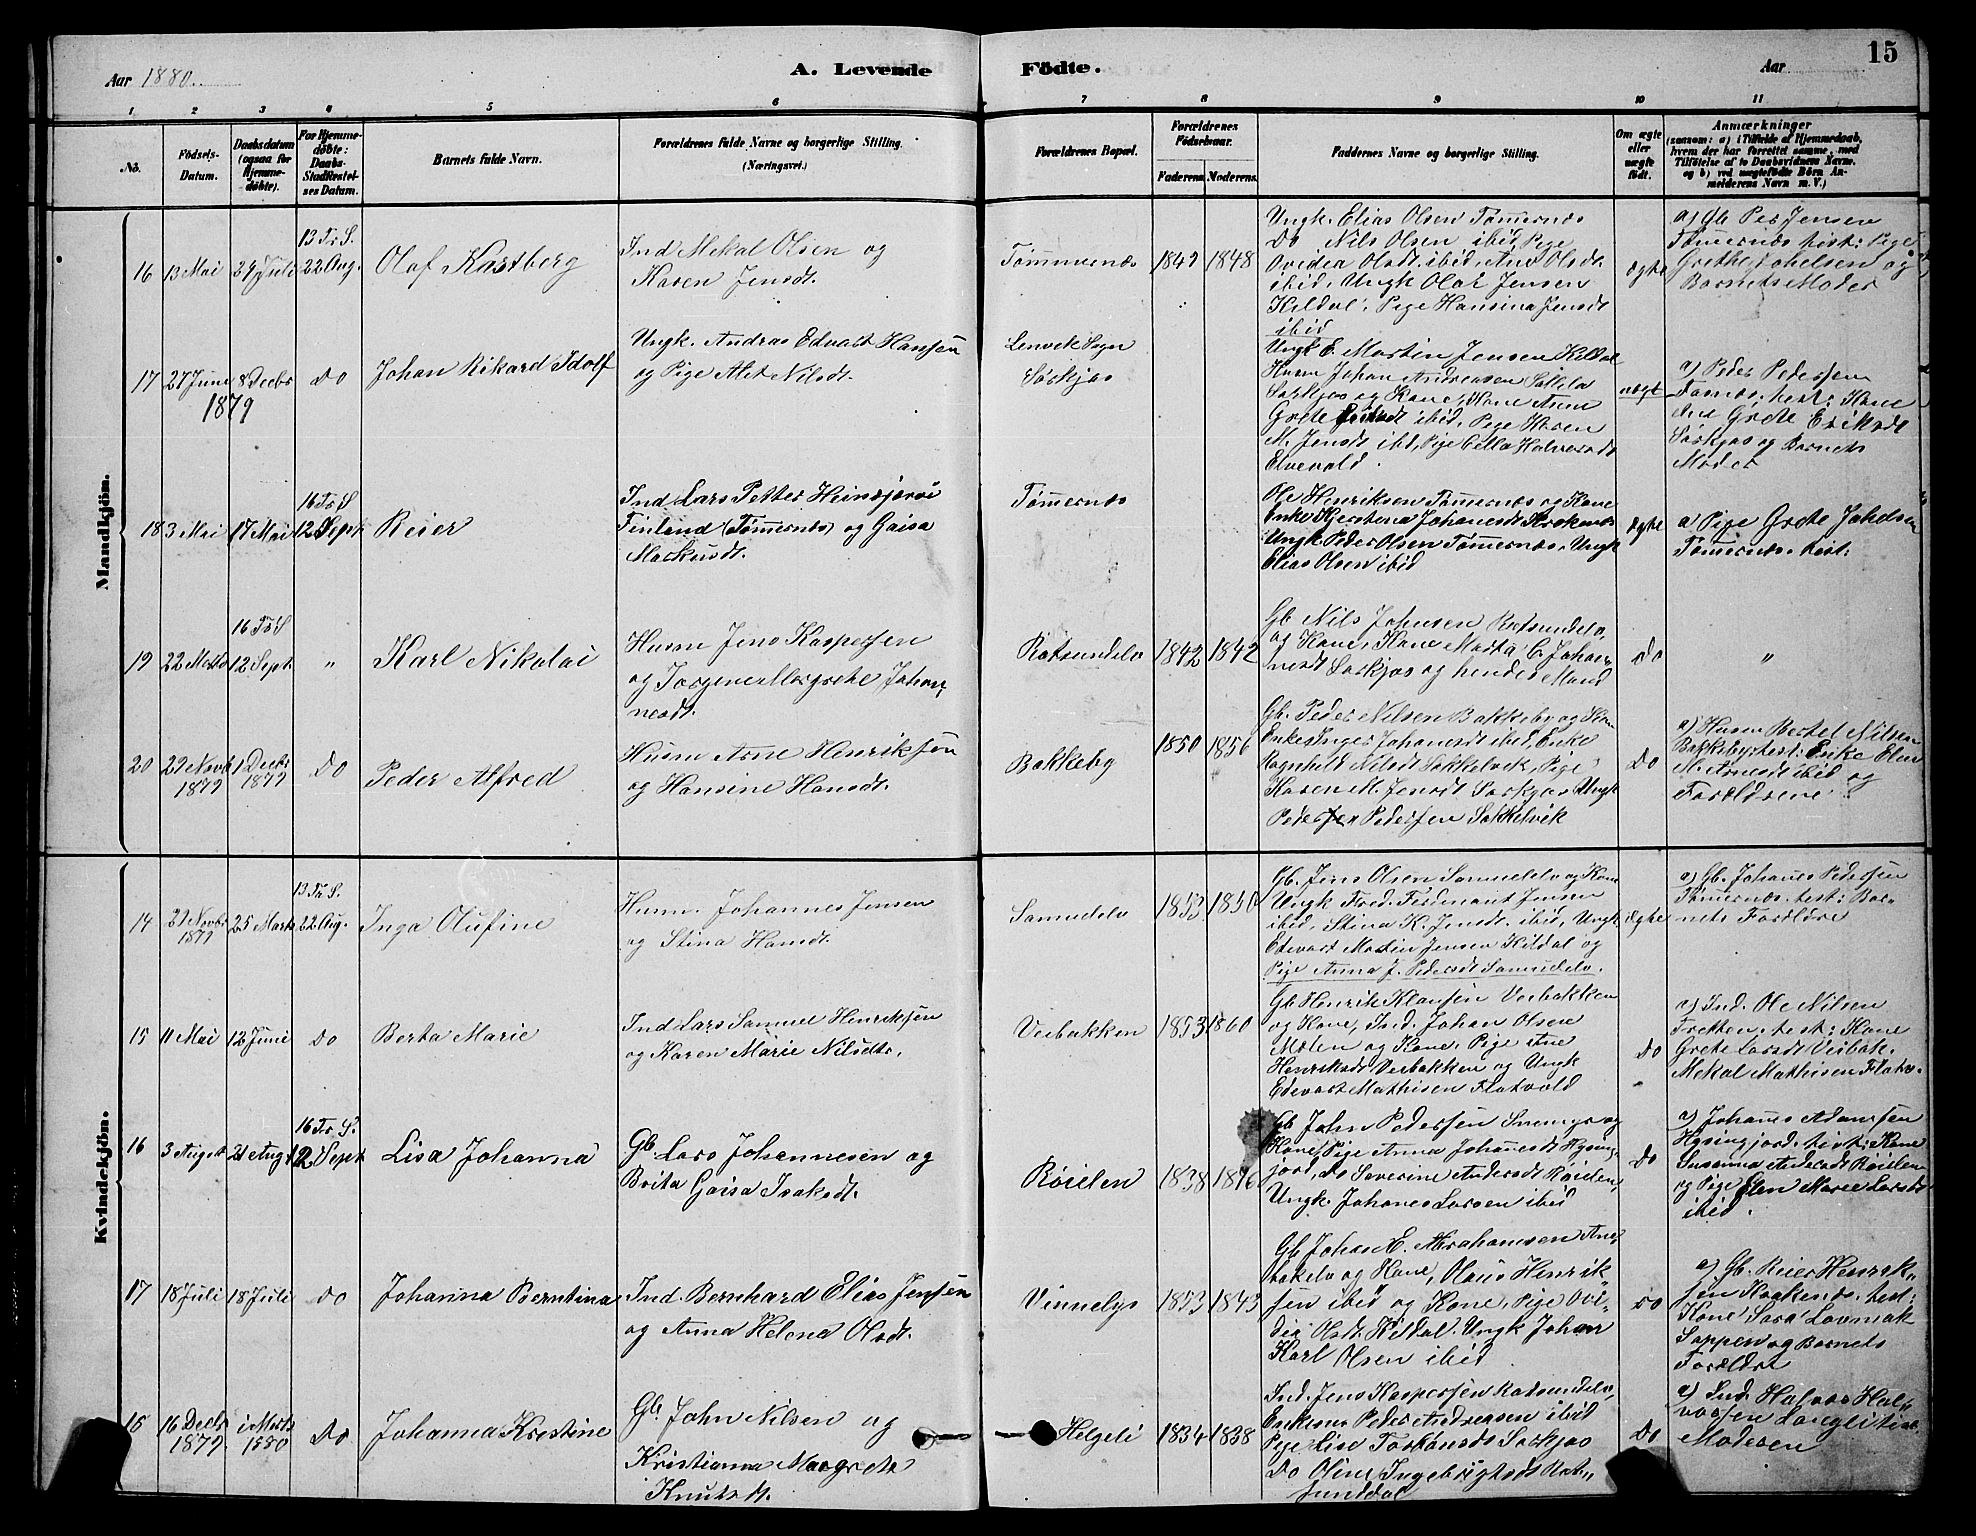 15
Aar 1880.
A. Levende Födte.
Aar
1 2 3 4 5 6 7 8 9 10 11
No.
Födsels-Datum.
Daabsdatum (ogsaa for Hjemmedöbte).
For Hjemmedöbte: Daabs-Stadfæstelses Datum.
Barnets fulde Navn.
Forældrenes fulde Navne og borgerlige Stilling. (Næringsvei.)
Forældrenes Bopæl.
Forældrenes Födselsaar.
Faderens Moderens
Faddernes Navne og borgerlige Stilling.
Om ægte eller uægte födt.
Anmærkninger
(saasom: a) i Tilfælde af Hjemmedaab,
hvem der har forrettet samme, med
Tilföielse af to Daabsvidners Navne.
og b) ved uægtefödte Börn Anmelderens Navn m. V.)
Mandkjön.
16
13 Mai
29 Juli
13 Tr. S.
22 Aug.
Olaf Kastberg
Ind Mekal Olsen og
Karen Jensdt.
Tømmernæs
1848
Ungk. Elias Olsen Tømernæs
Do Nils Olsen ibid, Pige
Ovedea Olsdt. ibid, Ane Olsdt.
ibid, Ungk Olaf Jensen
Kildal, Pige Hansina Jensdt
ibid
ægte
a) Gb Per Jensen
Tømernæs test: Pige
Grethe Johelsen og
Barnets Moder
17
27 June
8 Decbr
1879
Do
Johan Rikard Idolf
Ungk. Andras Edvart Hansen
og Pige Alet Nilsdt.
Lenvik Sogn
Sørkjos
Ungk E. Martin Jensen Kildal
Husm Johan Andreasen
Sørkjos og Kone, Kone Anne
Grete ibid, Pige Karen
M. Jensdt ibid, Pige Halvorsdt
Elvevold.
uægt
a) Peder Pedersen
test: Kone
Ane Grete Eriksdt
Sørkjos og Barnets
Moder
18
3 Mai
17 Mai
16 Tr S
12 Sept
Reier
Ind Lars Petter Heinsjervi
Finland (Tømernæs) og Gaisa
Markusdt.
Tømernæs
Ole Henriksen Tømernæs og Kone
Enke Kjerstena Johanesdt
Ungk Peder Olsen Tømernæs, Ungk
Elias Olsen ibid
ægte
a Pige Grete Johelsen
Tømernæs test.
19
22 Marts
16 Tr S
12 Sept
"
Karl Nikolai
Husm Jens Kaspersen
og Torgine Margrethe Johan-
nesdt.
Rotsundelv
1842
1842
Gb Nils Johnsen Rotsundelv
og Kone, Kone Marta C. Johan-
nesdt Sørkjos og hendes Mand
Do
"
20
29 Novb
1879
1 Decbr
1879
Do
Peder Alfred
Husm Arne Henriksen
og Hansine Hansdt.
Bakkeby
1850
1856
Gb. Peder Nilsen Bakkeby og Kone
Enke Inger Johanesdt ibid, Enke
Ragnhild Nilsdt Sokkelvik, Pige
Karen M. Jensdt Sørkjos Ungk
Pedersen Pedersen Sokkelvik
Do
a) Husm Bertel Nilsen
Bakkeby test: Enke Elen
M. Arnesdt ibid og
Forældrene
Kvindekjön.
14
21 Novbr
1879
25 Marts
13 Tr. S.
22 Aug.
Inga Olufine
Husm. Johannes Jensen
og Stina Hansdt.
Samuelelv
1853
1850
Gb. Jens Olsen Samuelelv og Kone
Ungk Fred. Ferdinant Jensen
ibid, Stina K. Jensdt. ibid, Ungk
Edevart Martin Jensen Kildal og
Pige Anna J. Pedersdt Samuelelv.
ægte
a) Gb. Johanes Pedersen
Tømernæs test: Bar-
nets Forældre
15
11 Mai
12 Juni
Do
Berta Marie
Ind Lars Samuel Henriksen
og Karen Marie Nilsdtr.
Veibakken
1853
1860
Gb Henrik Klausen Veibakken
og Kone, Ind. Johan Olsen
Molen og Kone, Pige Ane
Henriksdt Veibakken og Ungk
Edevart Mathisen Flatvold
Do
a) Ind. Ole Nilsen
Fretten test: Kone
Grete Larsdt Veibak.
Mekal Mathisen Flatv.
16
3 August
21 Aug
16 Tr. S.
12 Sept
Lisa Johanna
Gb. Lars Johannesen og
Brita Gaisa Isaksdt.
Röielen
1838
1846
Gb John Pedersen og
Kone, Pige Anna Johanesdt Hysing-
jord, Do Severine Andersdt Röielen,
Ungk. Johanes Larsen ibid
Do
a) Johanes Adamsen
Hysingjord test: Kone
Susanna Andersdt Röielen
og Pige Elen Marie Larsdt
ibid.
17
18 Juli
18 Juli
Do
Johanna Berntina
Ind Bernhard Elias Jensen
og Anna Helena Olsdt.
Vinnelys
1853
1843
Gb Johan E. Abrahamsen
og Kone, Olaus Henrik-
sen ibid og Kone, Pige Ovi-
dia Olsdt. Kildal. Ungk Johan
Karl Olsen ibid
Do
a) Gb. Reier Henrik-
sen test:
Kone Sara Lovmak
Sappen og Barnets
Forældre
18
16 Decbr
1879
1 Marts
1880
Do
Johanna Kristine
Gb. John Nilsen og
Kristianna Margrete
Knutsdt.
Helgeli
1834
1838
Ind. Jens Kaspersen Rotsundelv,
Enkem Peder Andreasen ibid
Pige Lise Sørkjos
Do Oline Ingebrigtsdt Rot-
sunddal
Do
a) Ind. Halvor Hal-
vorsen Langlid
Moderen